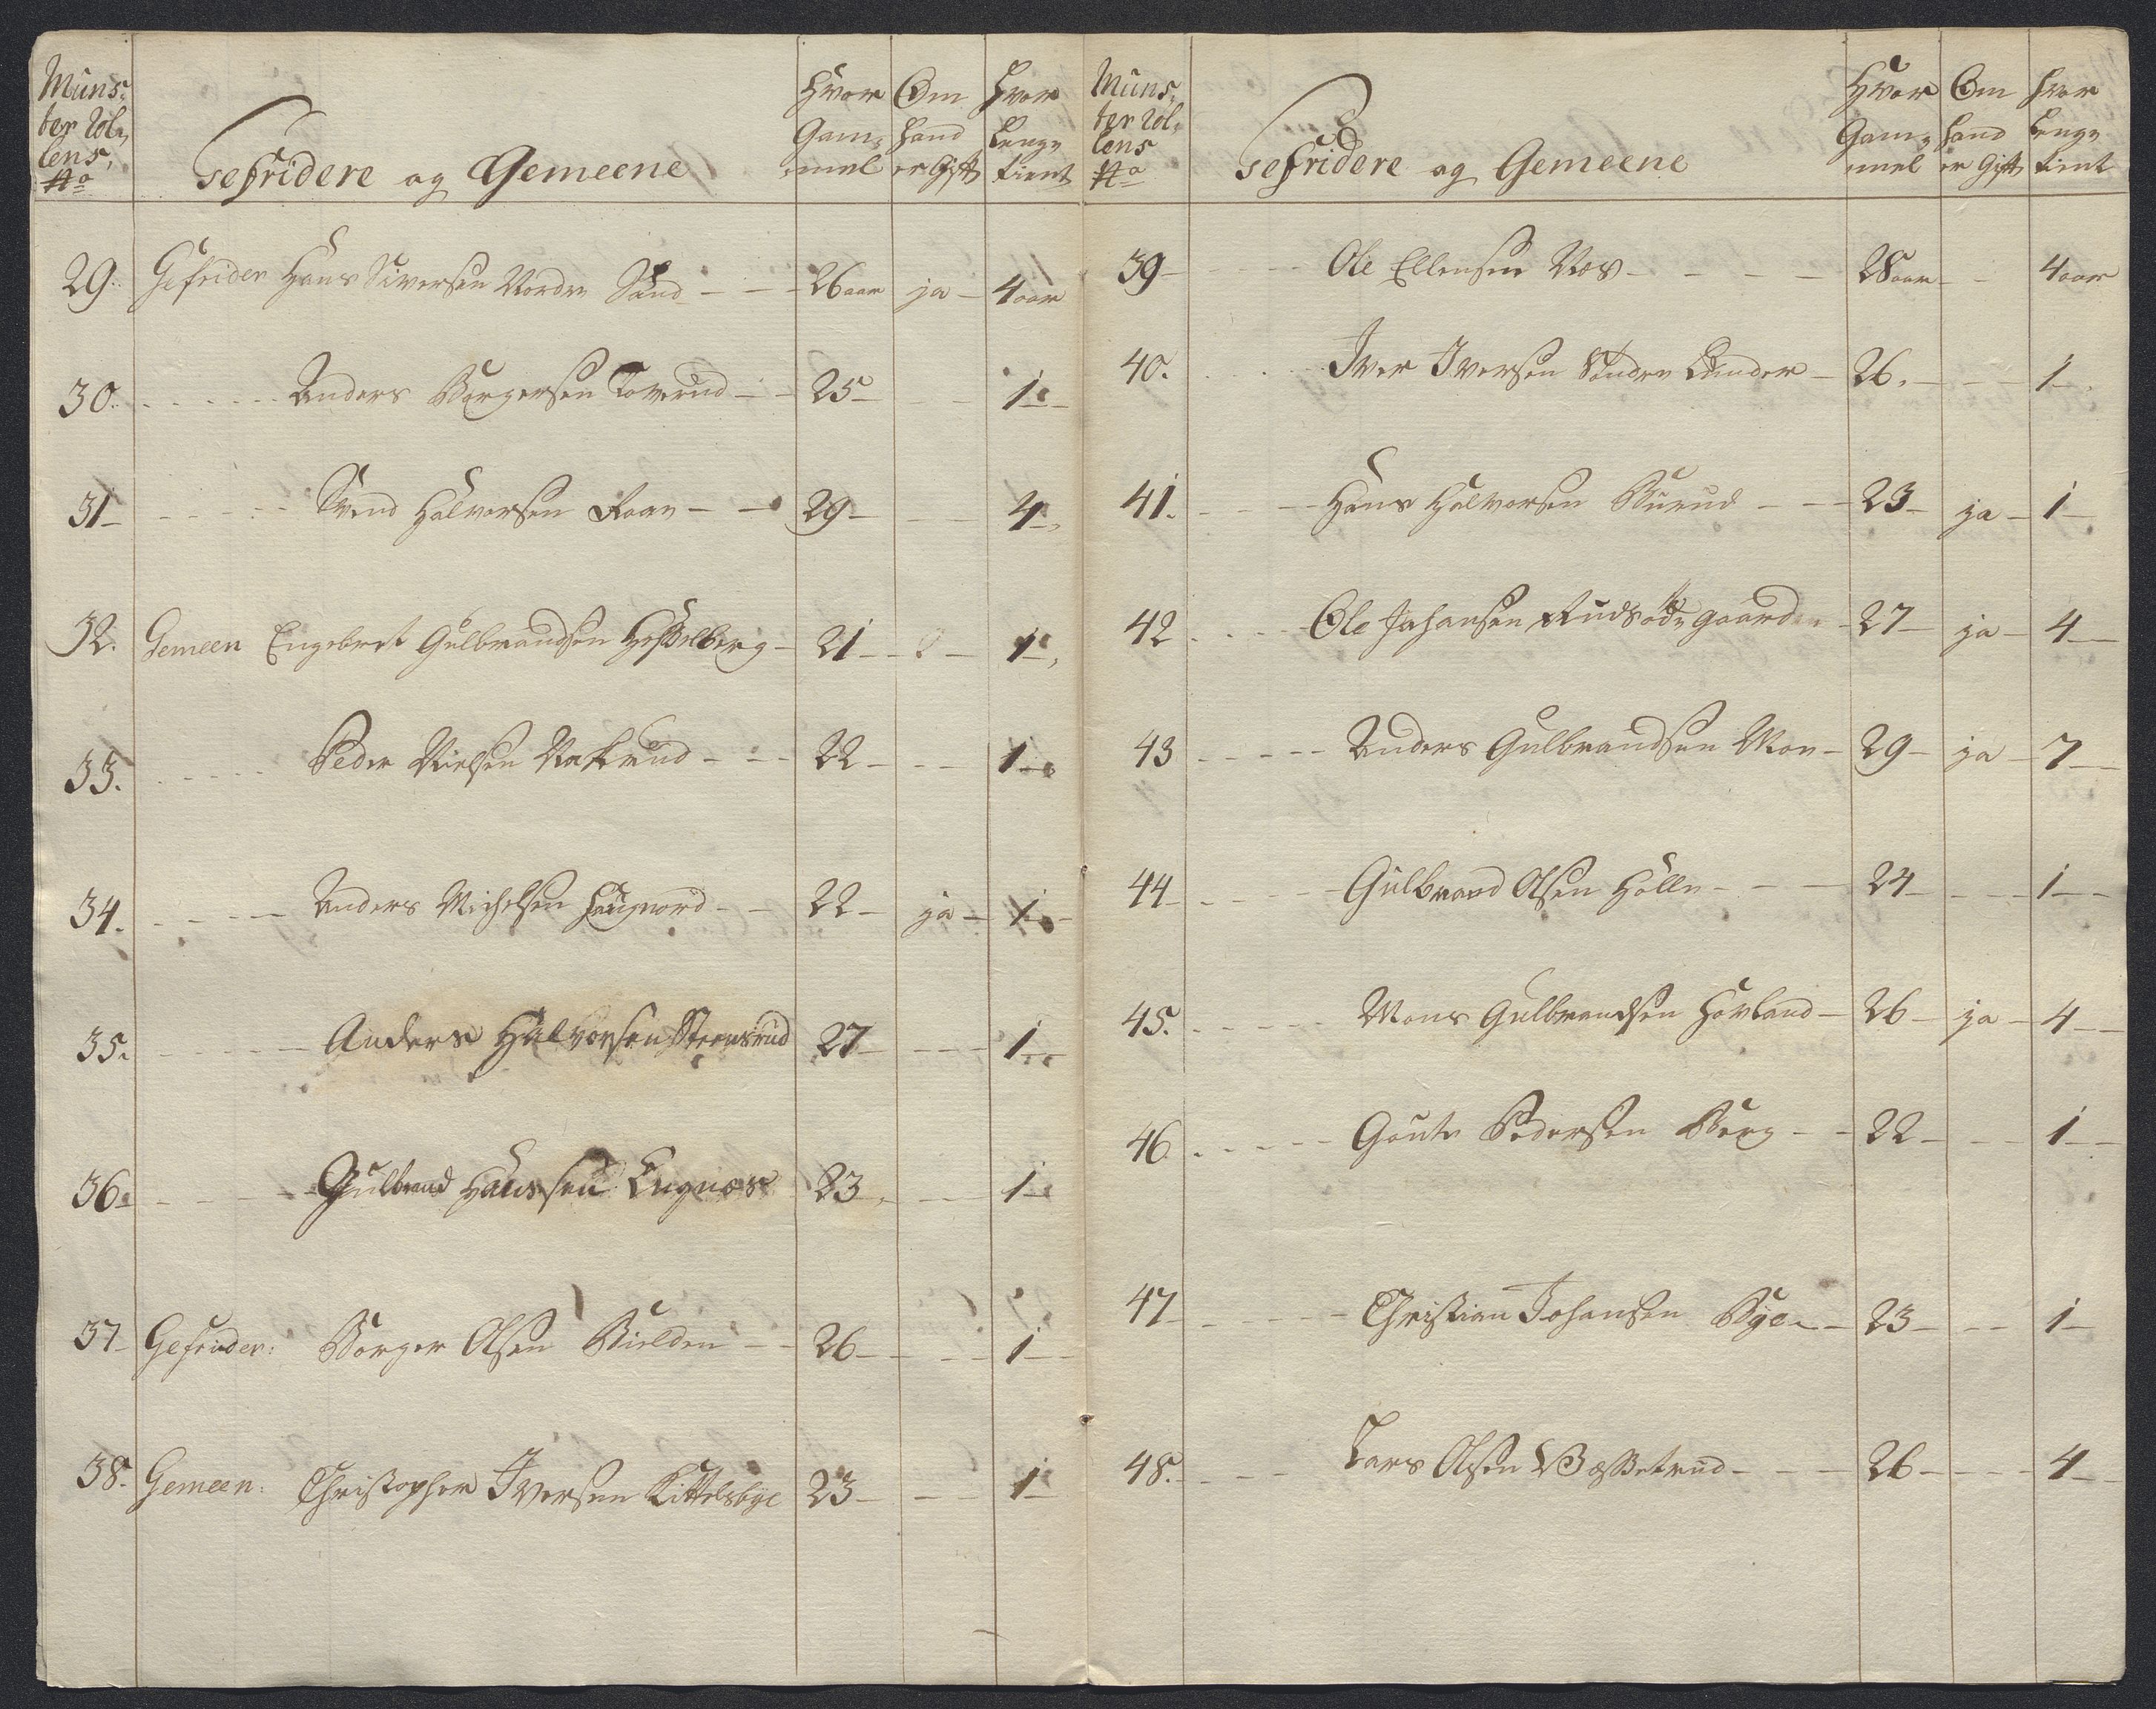 Müns:
ter Rol,
lens,
No
Gefridere og Gemeene
Hvor Gam: mel
Om hand er Gift
Hvor Lenge tient
29. Gefrider Hans Siversen Nordre Sand - - 26 aar ja - 4 aar
30. Anders Borgersen Toverud - - 25 - 1 -
31 - Svend Halvorsen Roen - - 29 - - 4 -
32. Gemeen Engebret Gulbrandsen Hesselberg - 21 - - 1 -
33. Peder Nielsen Nakrud - - 22 - - - 1 -
34. Anders Michelsen Haugnord - - 22 - ja - 1 -
35. Anders Halvorsen Steensrud 27 - - - 1 -
36. Gulbrand Hanssen Engnæs 23 - - 1 -
37 - Gefrider: Borger Olsen Bielden - - 26 - - - 1 -
38. Gemeen: Christopher Iversen Kittelsbye 23 - - - 1 -
Müns,
ter Rol,
lens
No
Gefridere og Gemeene
Hvor Gam: mel
Om hand er Gift
Hvor Lenge tient
39 - Ole Ellensen Næs - - - - 28 aar - - 4 aar
40. Iver Iversen Söndre Lunder - 26. - - - 1 -
41. Hans Halvorsen Burud - - 23 - ja - 1 -
42 Ole Johansen Rudsödegaard - 27 - ja - 4 -
43 Anders Gulbrandsen Moe - 29 - ja - 7 -
44 - Gulbrand Olsen Hölle - - - 24 - - - 1 -
45. Mons Gulbrandsen Hovland - 26 - ja - 4 -
46. Goute Pedersen Berg - - 22 - - - 1 -
47 - Christian Johansen Bye - - 23 - - - 1 -
48. Lars Olsen Bæssetrud - - - 26 - - - 4 -